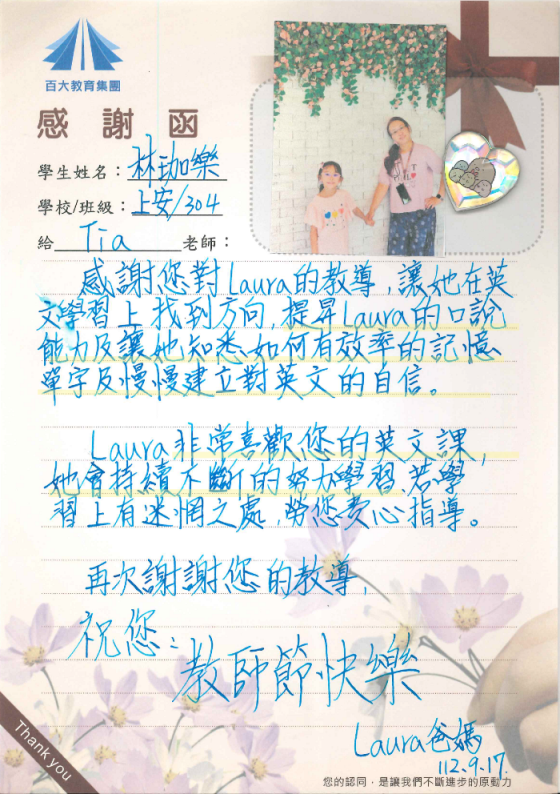 百大教育集團
感謝函
學生姓名：林珈樂
學校/班級：上安/304
給 Tia 老師：
感謝您對Laura的教導，讓她在英
文學習上找到方向，提昇Laura的口說
能力及讓她知悉如何有效率的記憶
單字及慢慢建立對英文的自信。
Laura非常喜歡您的英文課，
她會持續不斷的努力學習，若學
習上有迷惘之處，勞您費心指導。
再次謝謝您的教導，
祝您：
教師節快樂
Laura爸媽
112.9.17.
Thank you
您的認同，是讓我們不斷進步的原動力